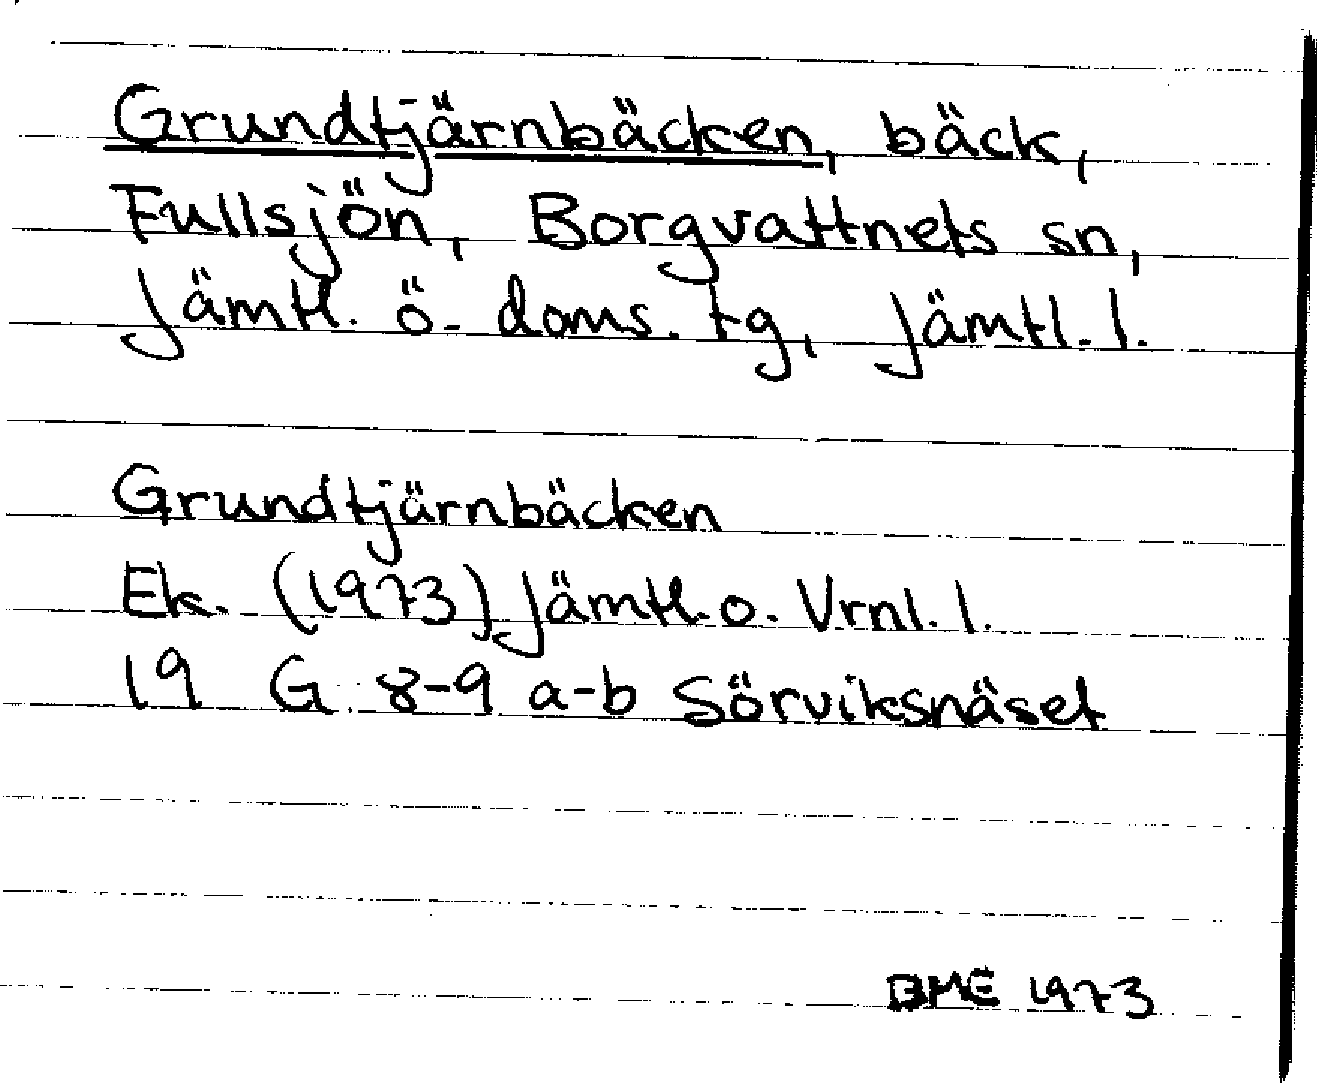 Grundtjärnbäcken, bäck,
Fullsjön, Borgvattnets sn,
Jämtl. ö. doms. tg, Jämtl. l.
Grundtjärnbäcken
Ek. (1973) Jämtl. o. Vrnl. l.
19 G 8-9 a-b Sörviksnäset
BME 1973